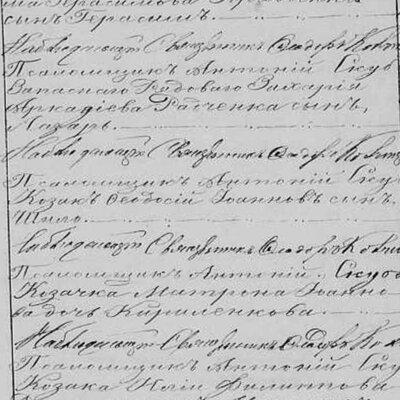 ма Герасимова
сынъ Герасимъ.
Наблюдаютъ Священникъ Ѳеодоръ
Псаломщикъ Антоній Скуб
Запаснаго Рядоваго Захарія
Аркадіева Радченка сынъ,
Лазарь.
Наблюдаютъ Священникъ Ѳеодоръ
Псаломщикъ Антоній Ску
Козакъ Ѳеодосій Іоанновъ сынъ
Шило.
Наблюдаютъ Священникъ Ѳеодоръ
Псаломщикъ Антоній Скуб
Козачка Матрона Іоанно
ва дочь Кириленкова.
Наблюдаютъ Священникъ Ѳеодоръ
Псаломщикъ Антоній Ску
Козака Иліи Филиппова